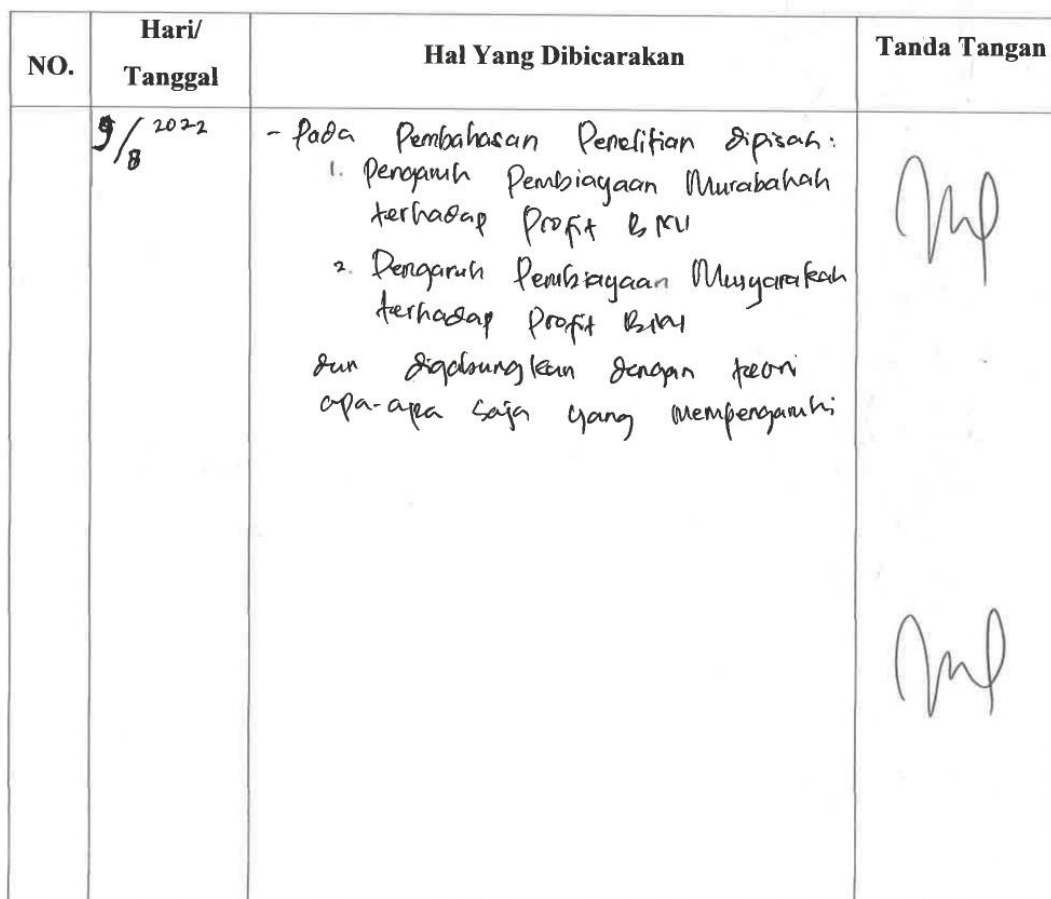 NO.
Hari/
Tanggal
Hal Yang Dibicarakan
Tanda Tangan
9/8 2022
- Pada Pembahasan Penelitian dipisah:
1. Pengaruh Pembiayaan Murabahah
terhadap Profit
2. Pengaruh Pembiayaan Musyarakah
terhadap Profit
dan digabungkan dengan teori
apa-apa saja yang mempengaruhi